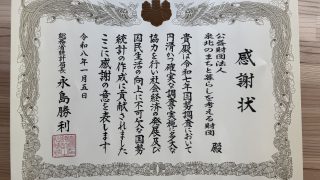 感謝状
公益財団法人
東北のまちと暮らしを考える財団
殿
貴殿は令和七年国勢調査において
円滑かつ確実な調査実施に多大な
協力を行い社会経済の発展及び
国民生活の向上に不可欠な国勢
統計の作成に貢献されました
ここに感謝の意を表します
令和八年一月五日
総務省統計局長 永島勝利